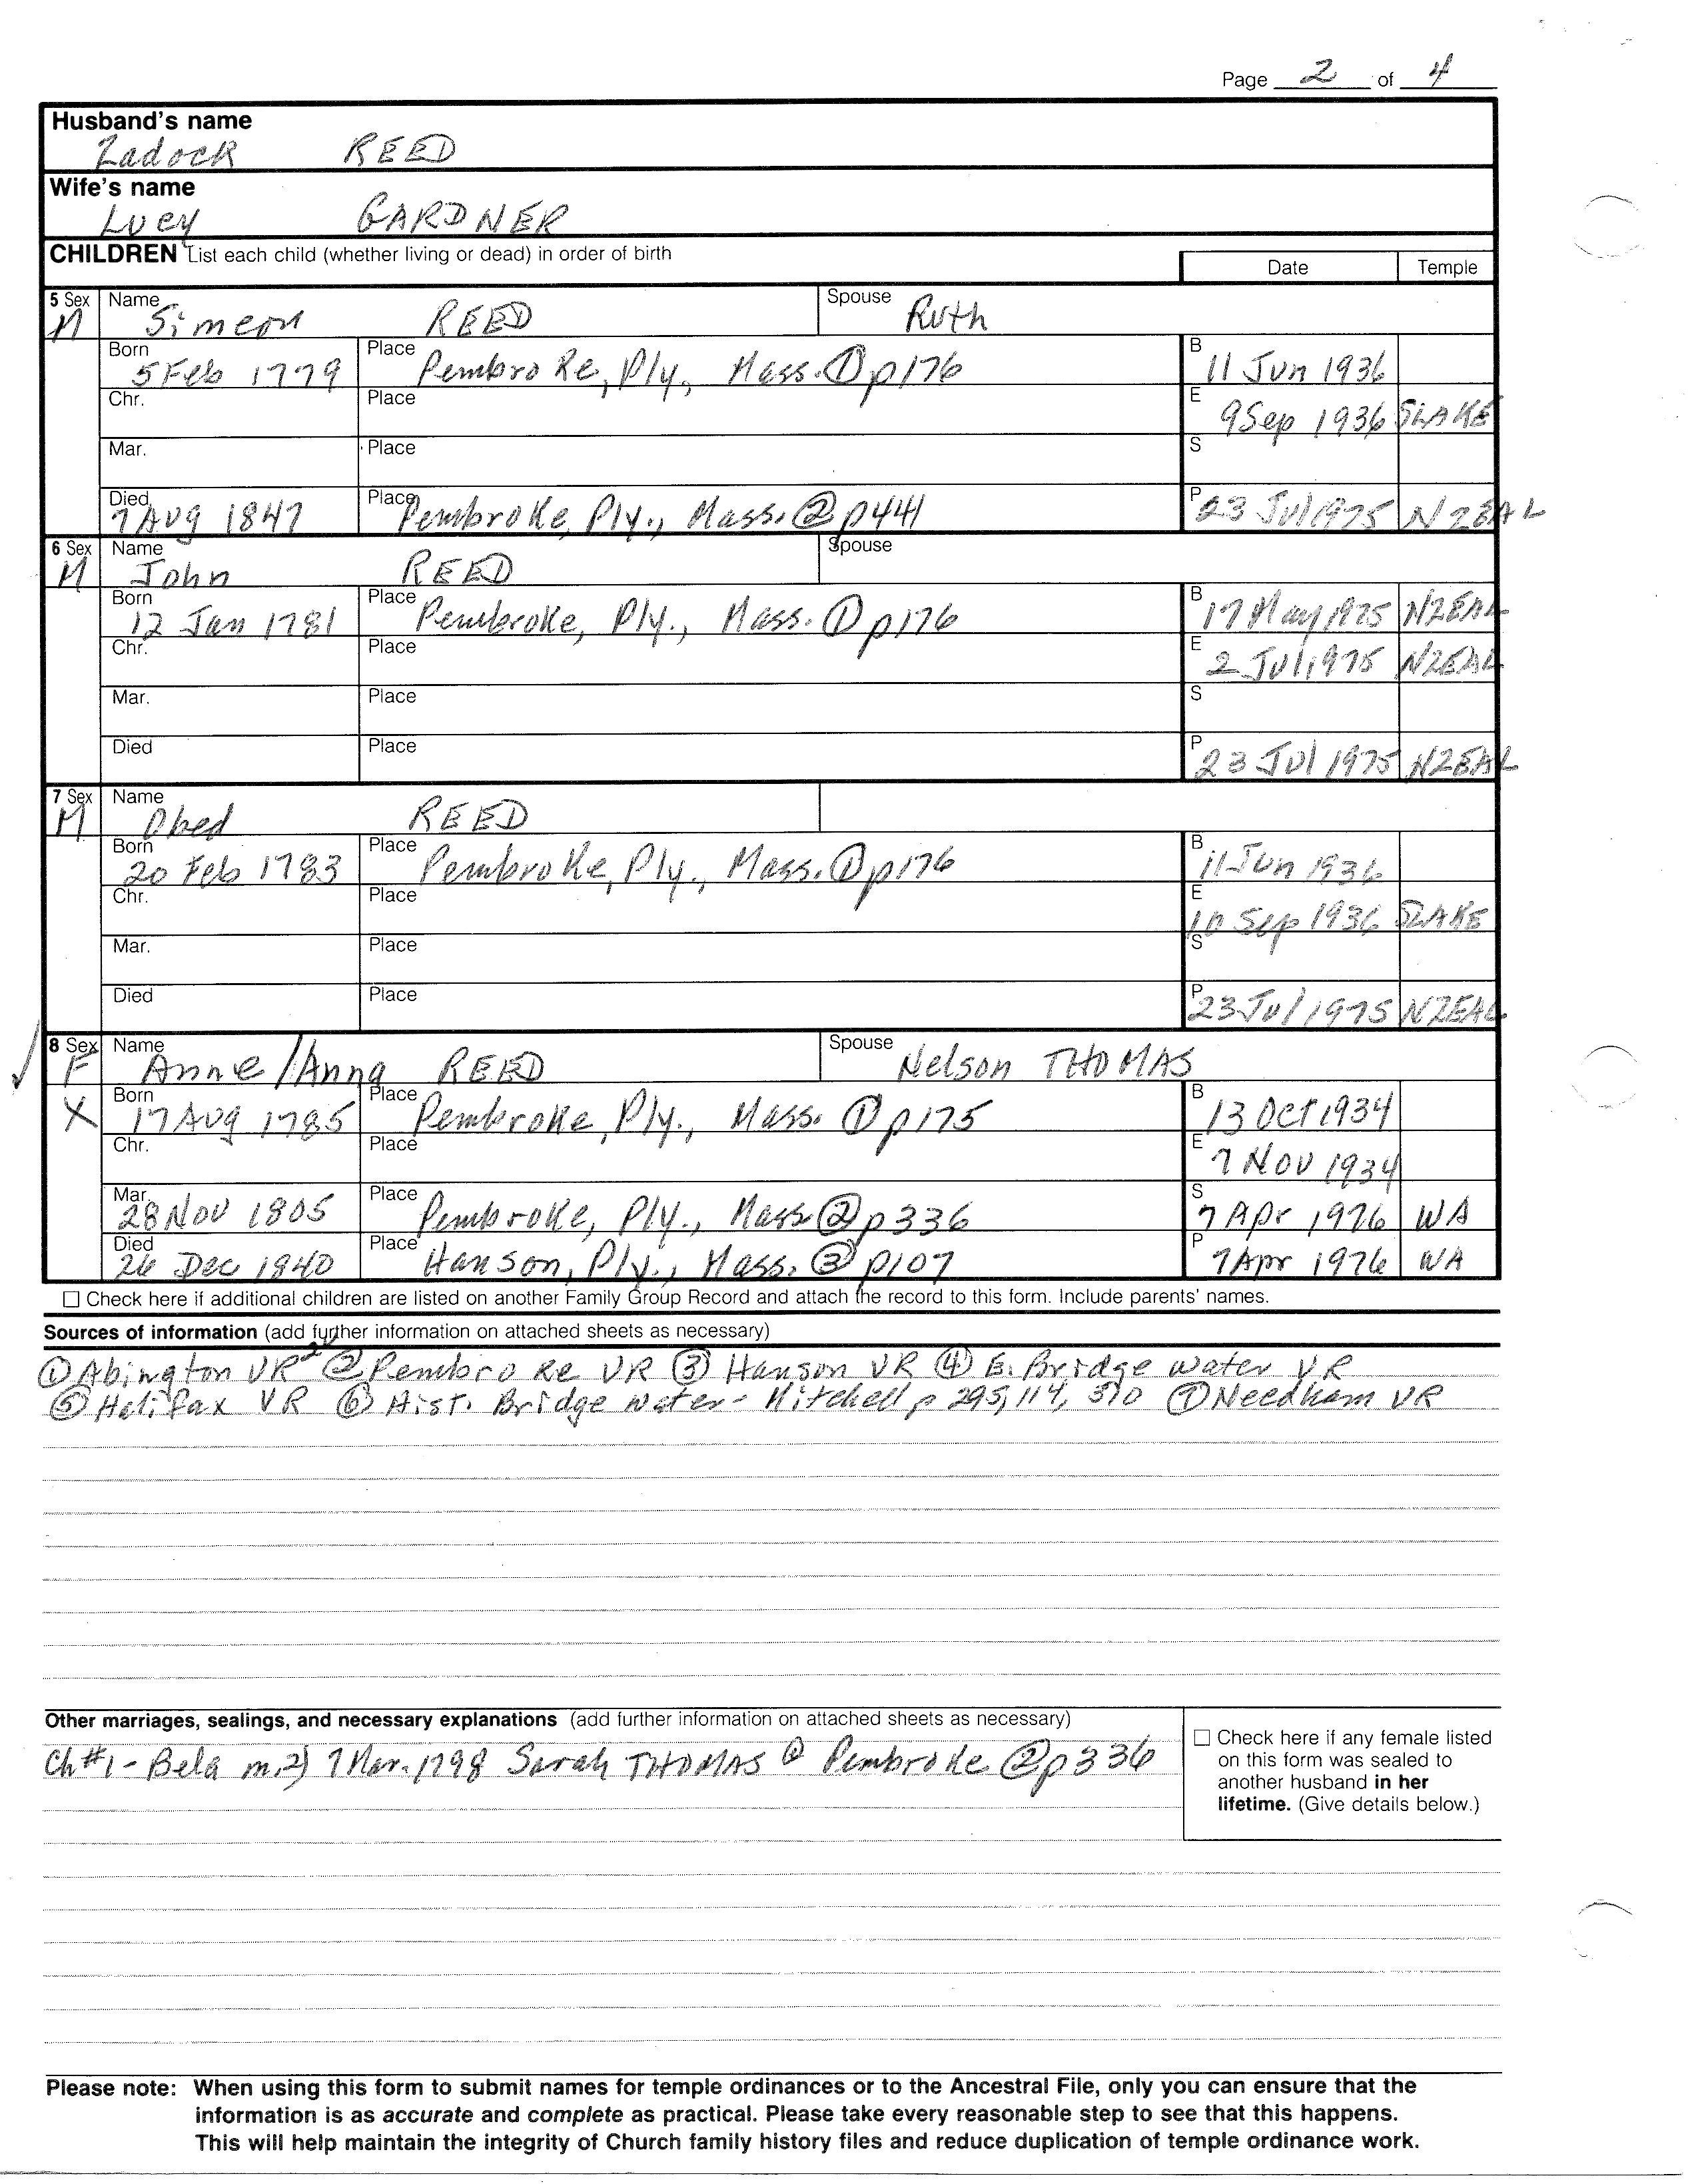 Page 2 of 4
Husband's name
Zadock REED
Wife's name
Lucy GARDNER
CHILDREN List each child (whether living or dead) in order of birth
Date Temple
5 Sex Name Spouse
M Simeon REED Ruth
Born Place B
5 Feb 1779 Pembroke, Ply, Mass. ① p176 11 Jun 1936
Chr. Place E
9 Sep 1936 SLAKE
Mar. Place S
Died Place P
7 Aug 1847 Pembroke, Ply., Mass. ② p441 23 Jul 1975 NZEAL
6 Sex Name Spouse
M John REED
Born Place B
12 Jan 1781 Pembroke, Ply., Mass. ① p176 17 May 1975 NZEAL
Chr. Place E
2 Jul 1975 NZEAL
Mar. Place S
Died Place P
23 Jul 1975 NZEAL
7 Sex Name
M Obed REED
Born Place B
20 Feb 1783 Pembroke, Ply., Mass. ① p176 11 Jun 1936
Chr. Place E
10 Sep 1936 SLAKE
Mar. Place S
Died Place P
23 Jul 1975 NZEAL
8 Sex Name Spouse
F Anne/Anna REED Nelson THOMAS
Born Place B
X 17 Aug 1785 Pembroke, Ply., Mass. ① p175 13 Oct 1934
Chr. Place E
7 Nov 1934
Mar. Place S
28 Nov 1805 Pembroke, Ply., Mass ② p336 7 Apr 1976 WA
Died Place P
26 Dec 1840 Hanson, Ply., Mass. ③ p107 7 Apr 1976 WA
☐ Check here if additional children are listed on another Family Group Record and attach the record to this form. Include parents' names.
Sources of information (add further information on attached sheets as necessary)
① Abington VR ② Pembroke VR ③ Hanson VR ④ E. Bridgewater VR
⑤ Halifax VR ⑥ Hist. Bridgewater - Mitchell p 295, 114, 370 ⑦ Needham VR
Other marriages, sealings, and necessary explanations (add further information on attached sheets as necessary)
Ch #1 - Bela m.2) 7 Mar. 1798 Sarah THOMAS @ Pembroke ② p336
☐ Check here if any female listed
on this form was sealed to
another husband in her
lifetime. (Give details below.)
Please note: When using this form to submit names for temple ordinances or to the Ancestral File, only you can ensure that the
information is as accurate and complete as practical. Please take every reasonable step to see that this happens.
This will help maintain the integrity of Church family history files and reduce duplication of temple ordinance work.